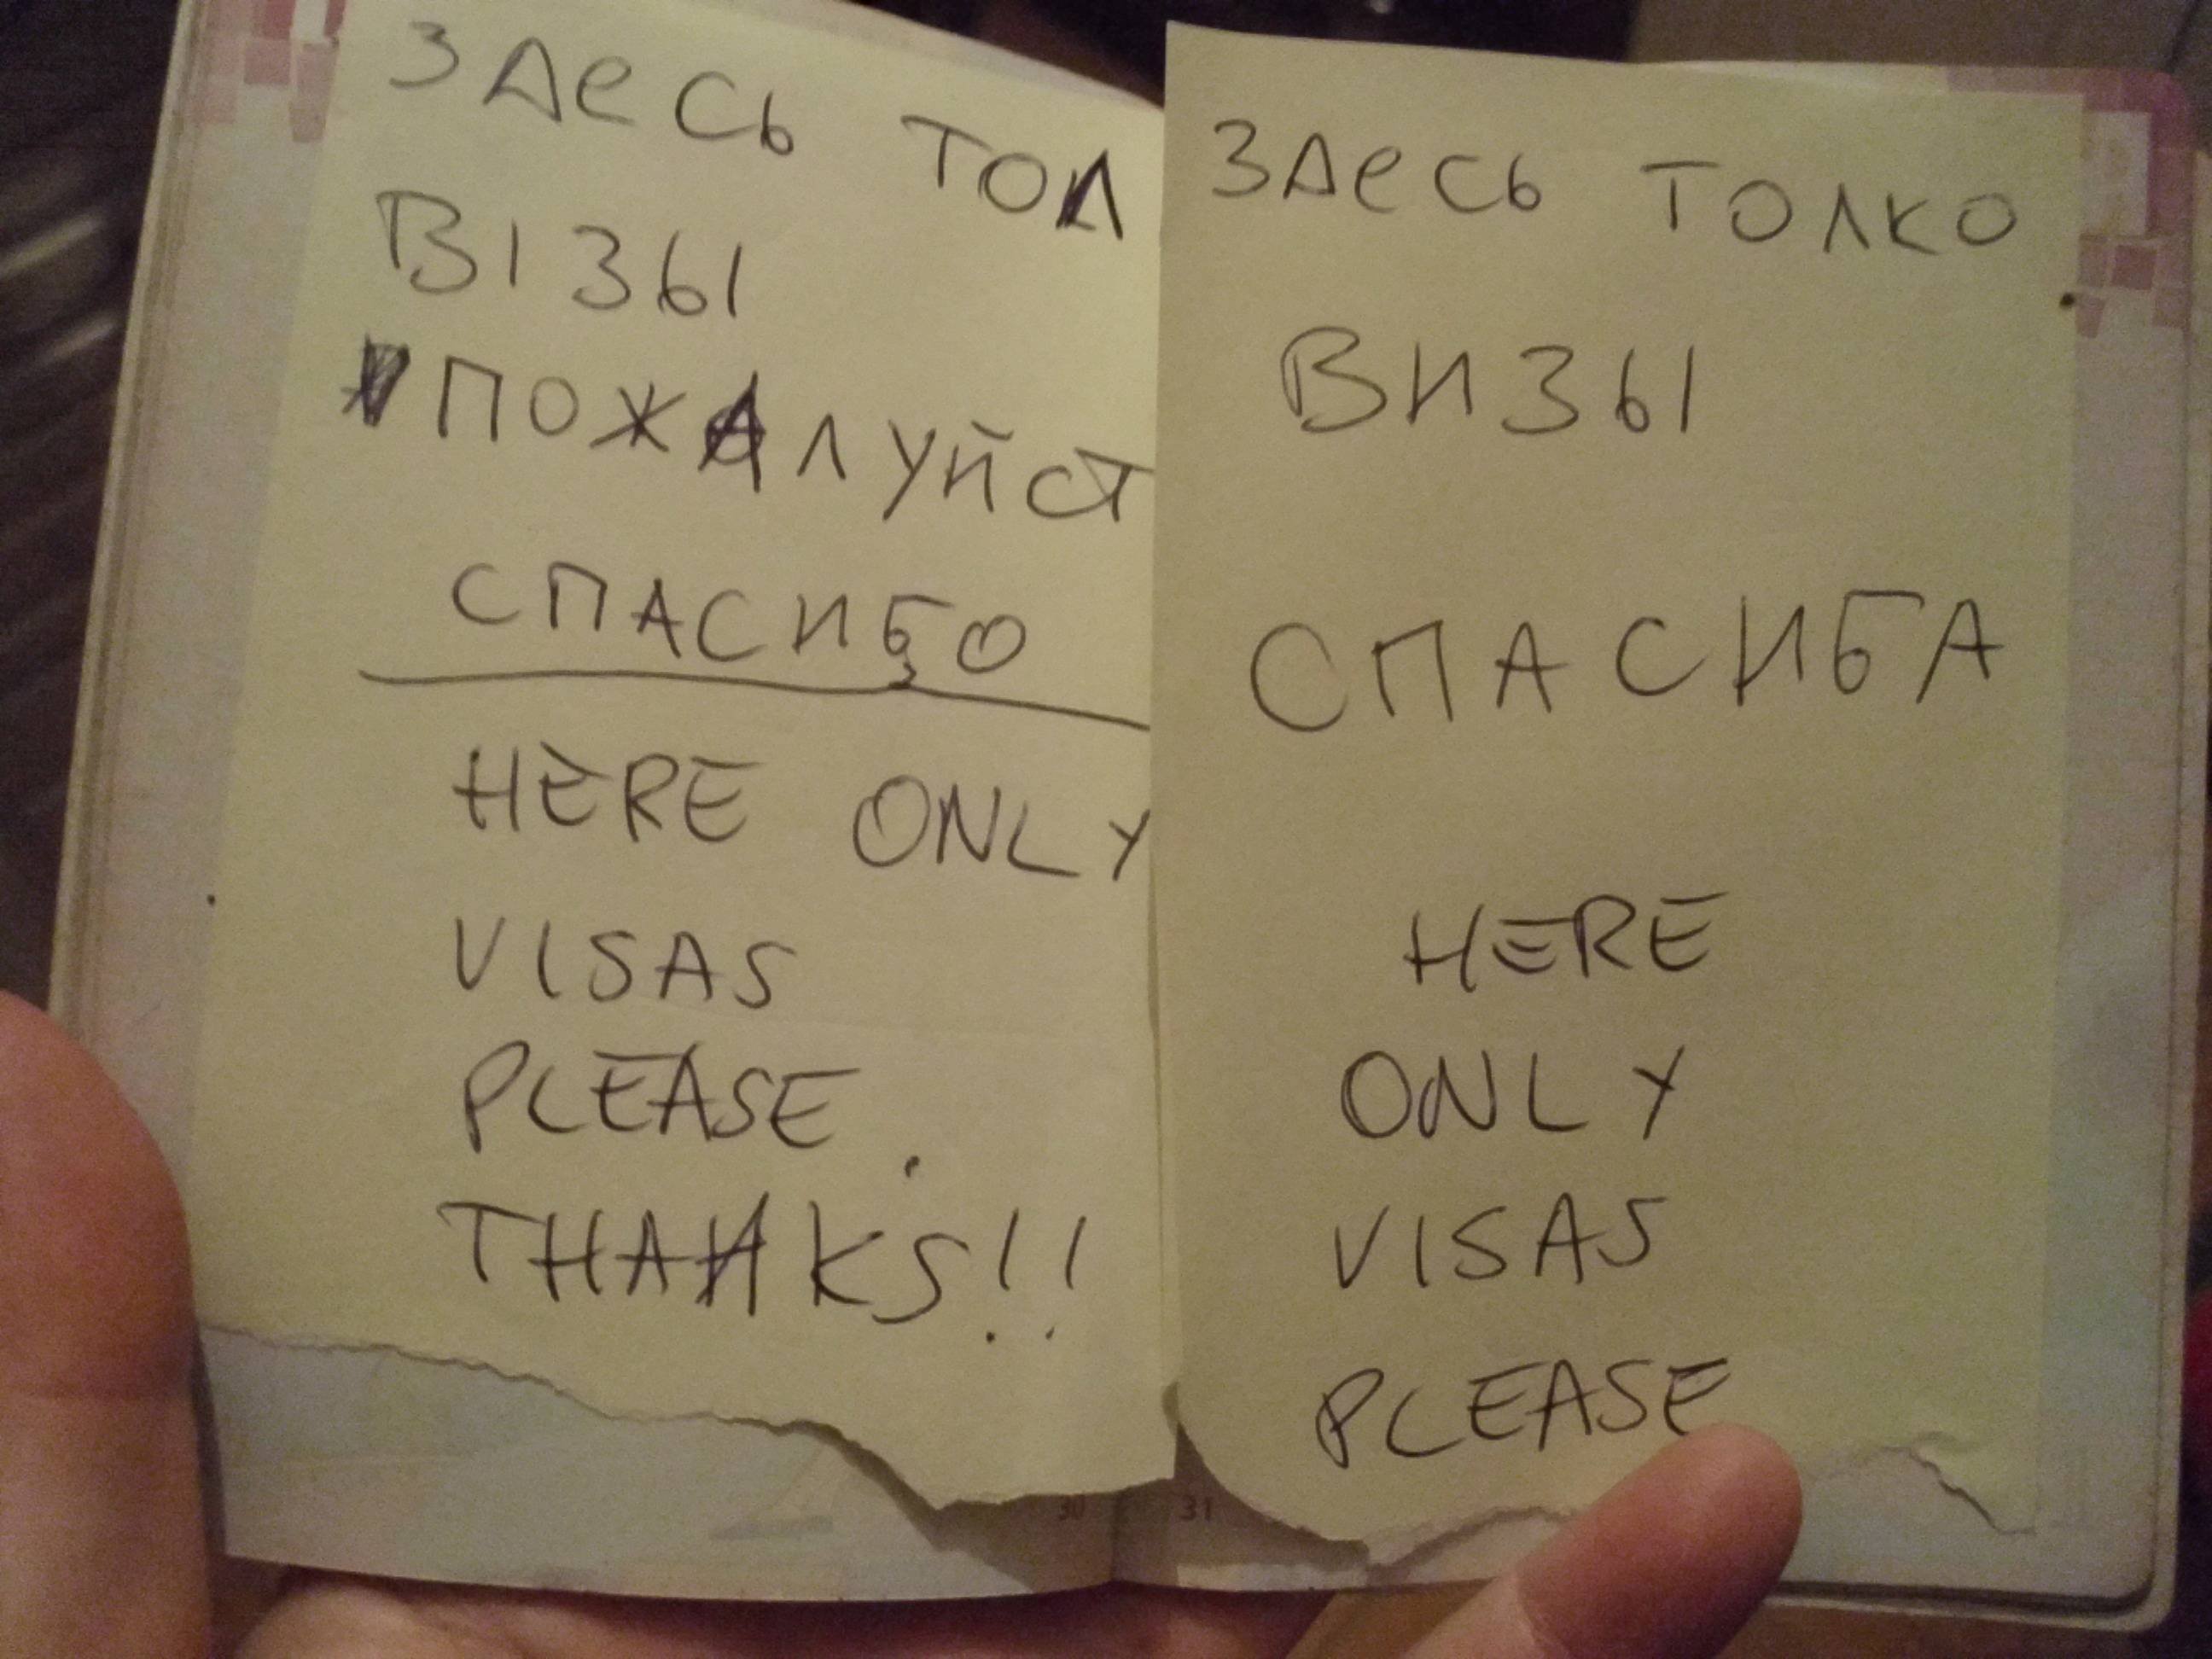 ЗДЕСЬ ТОЛ
ВІЗЫ
ПОЖАЛУЙСТ
СПАСИБО
HERE ONLY
VISAS
PLEASE.
THANKS!!
30
ЗДЕСЬ ТОЛКО
ВИЗЫ
СПАСИБА
HERE
ONLY
VISAS
PLEASE
31